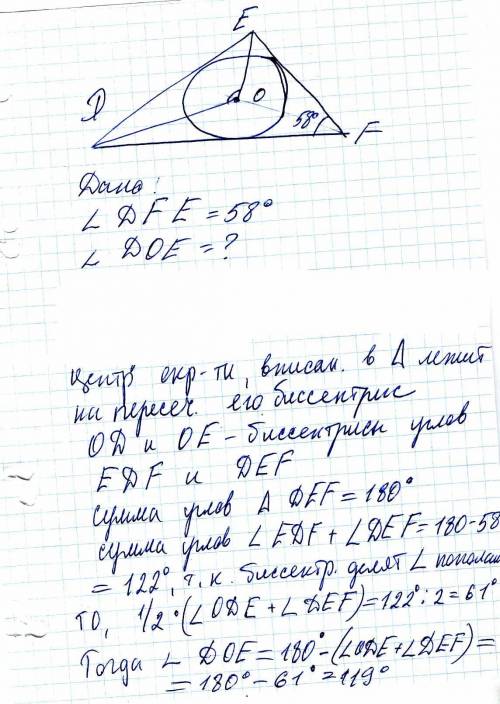 E
D
O
58°
F
Дано:
∠ DFE = 58°
∠ DOE = ?
Центр окр-ти, вписан. в Δ лежит
на пересеч. его биссектрис
OD и OE - биссектрисы углов
EDF и DEF
Сумма углов Δ DEF = 180°
Сумма углов ∠ EDF + ∠DEF = 180-58
= 122°, т.к. биссектр. делят ∠ пополам
ТО, 1/2 · (∠ODE + ∠DEF) = 122° : 2 = 61°
Тогда ∠ DOE = 180° - (∠ODE + ∠DEF) =
= 180° - 61° = 119°